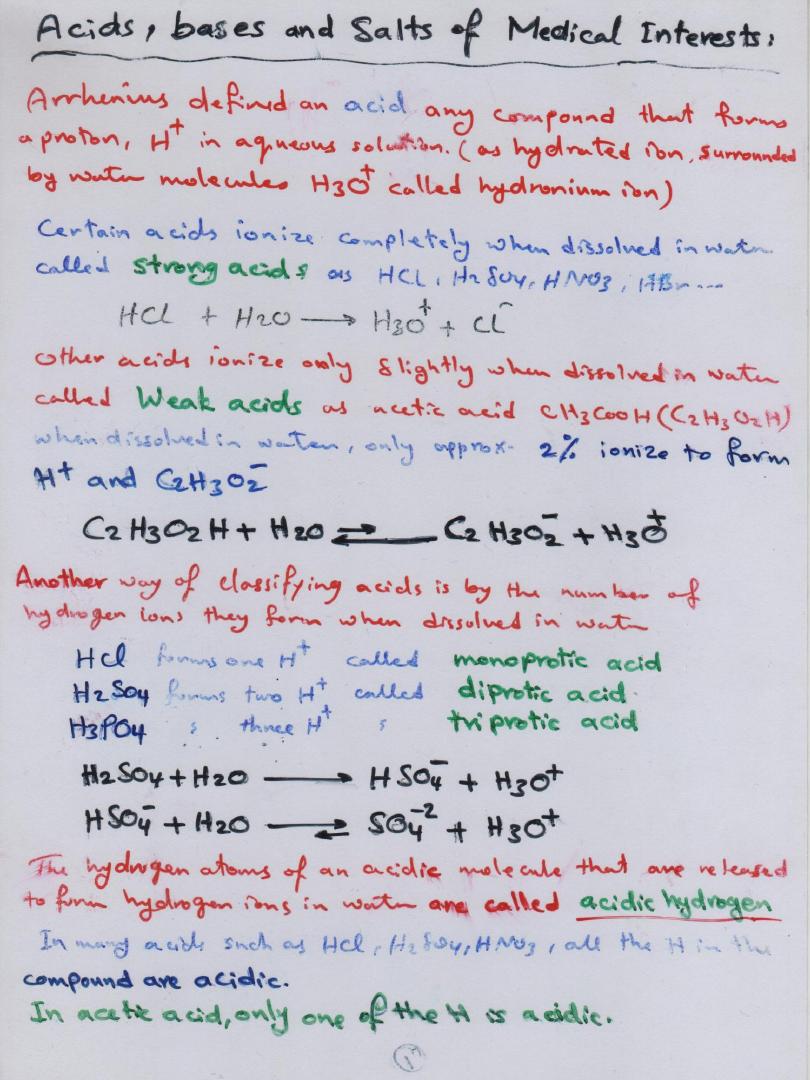 Acids, bases and Salts of Medical Interests:
Arrhenius defined an acid any compound that forms
a proton, H⁺ in aqueous solution. (as hydrated ion, surrounded
by water molecules H3O⁺ called hydronium ion)
Certain acids ionize completely when dissolved in water
called strong acids as HCl, H2SO4, HNO3, HBr ...
HCl + H2O ⟶ H3O⁺ + Cl⁻
other acids ionize only slightly when dissolved in water
called Weak acids as acetic acid CH3COOH (C2H3O2H)
when dissolved in water, only approx. 2% ionize to form
H⁺ and C2H3O2⁻
C2H3O2H + H2O ⇌ C2H3O2⁻ + H3O⁺
Another way of classifying acids is by the number of
hydrogen ions they form when dissolved in water
HCl forms one H⁺ called monoprotic acid
H2SO4 forms two H⁺ called diprotic acid.
H3PO4 : three H⁺ : triprotic acid
H2SO4 + H2O ⟶ HSO4⁻ + H3O⁺
HSO4⁻ + H2O ⇌ SO4⁻² + H3O⁺
The hydrogen atoms of an acidic molecule that are released
to form hydrogen ions in water are called acidic hydrogen
In many acids such as HCl, H2SO4, HNO3, all the H in the
compound are acidic.
In acetic acid, only one of the H is acidic.